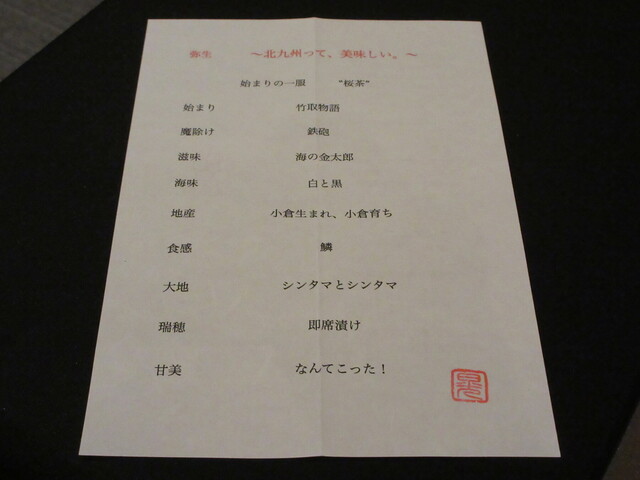 弥生　～北九州って、美味しい。～
始まりの一服　“桜茶”
始まり　竹取物語
魔除け　鉄砲
滋味　海の金太郎
海味　白と黒
地産　小倉生まれ、小倉育ち
食感　鱗
大地　シンタマとシンタマ
瑞穂　即席漬け
甘美　なんてこった！